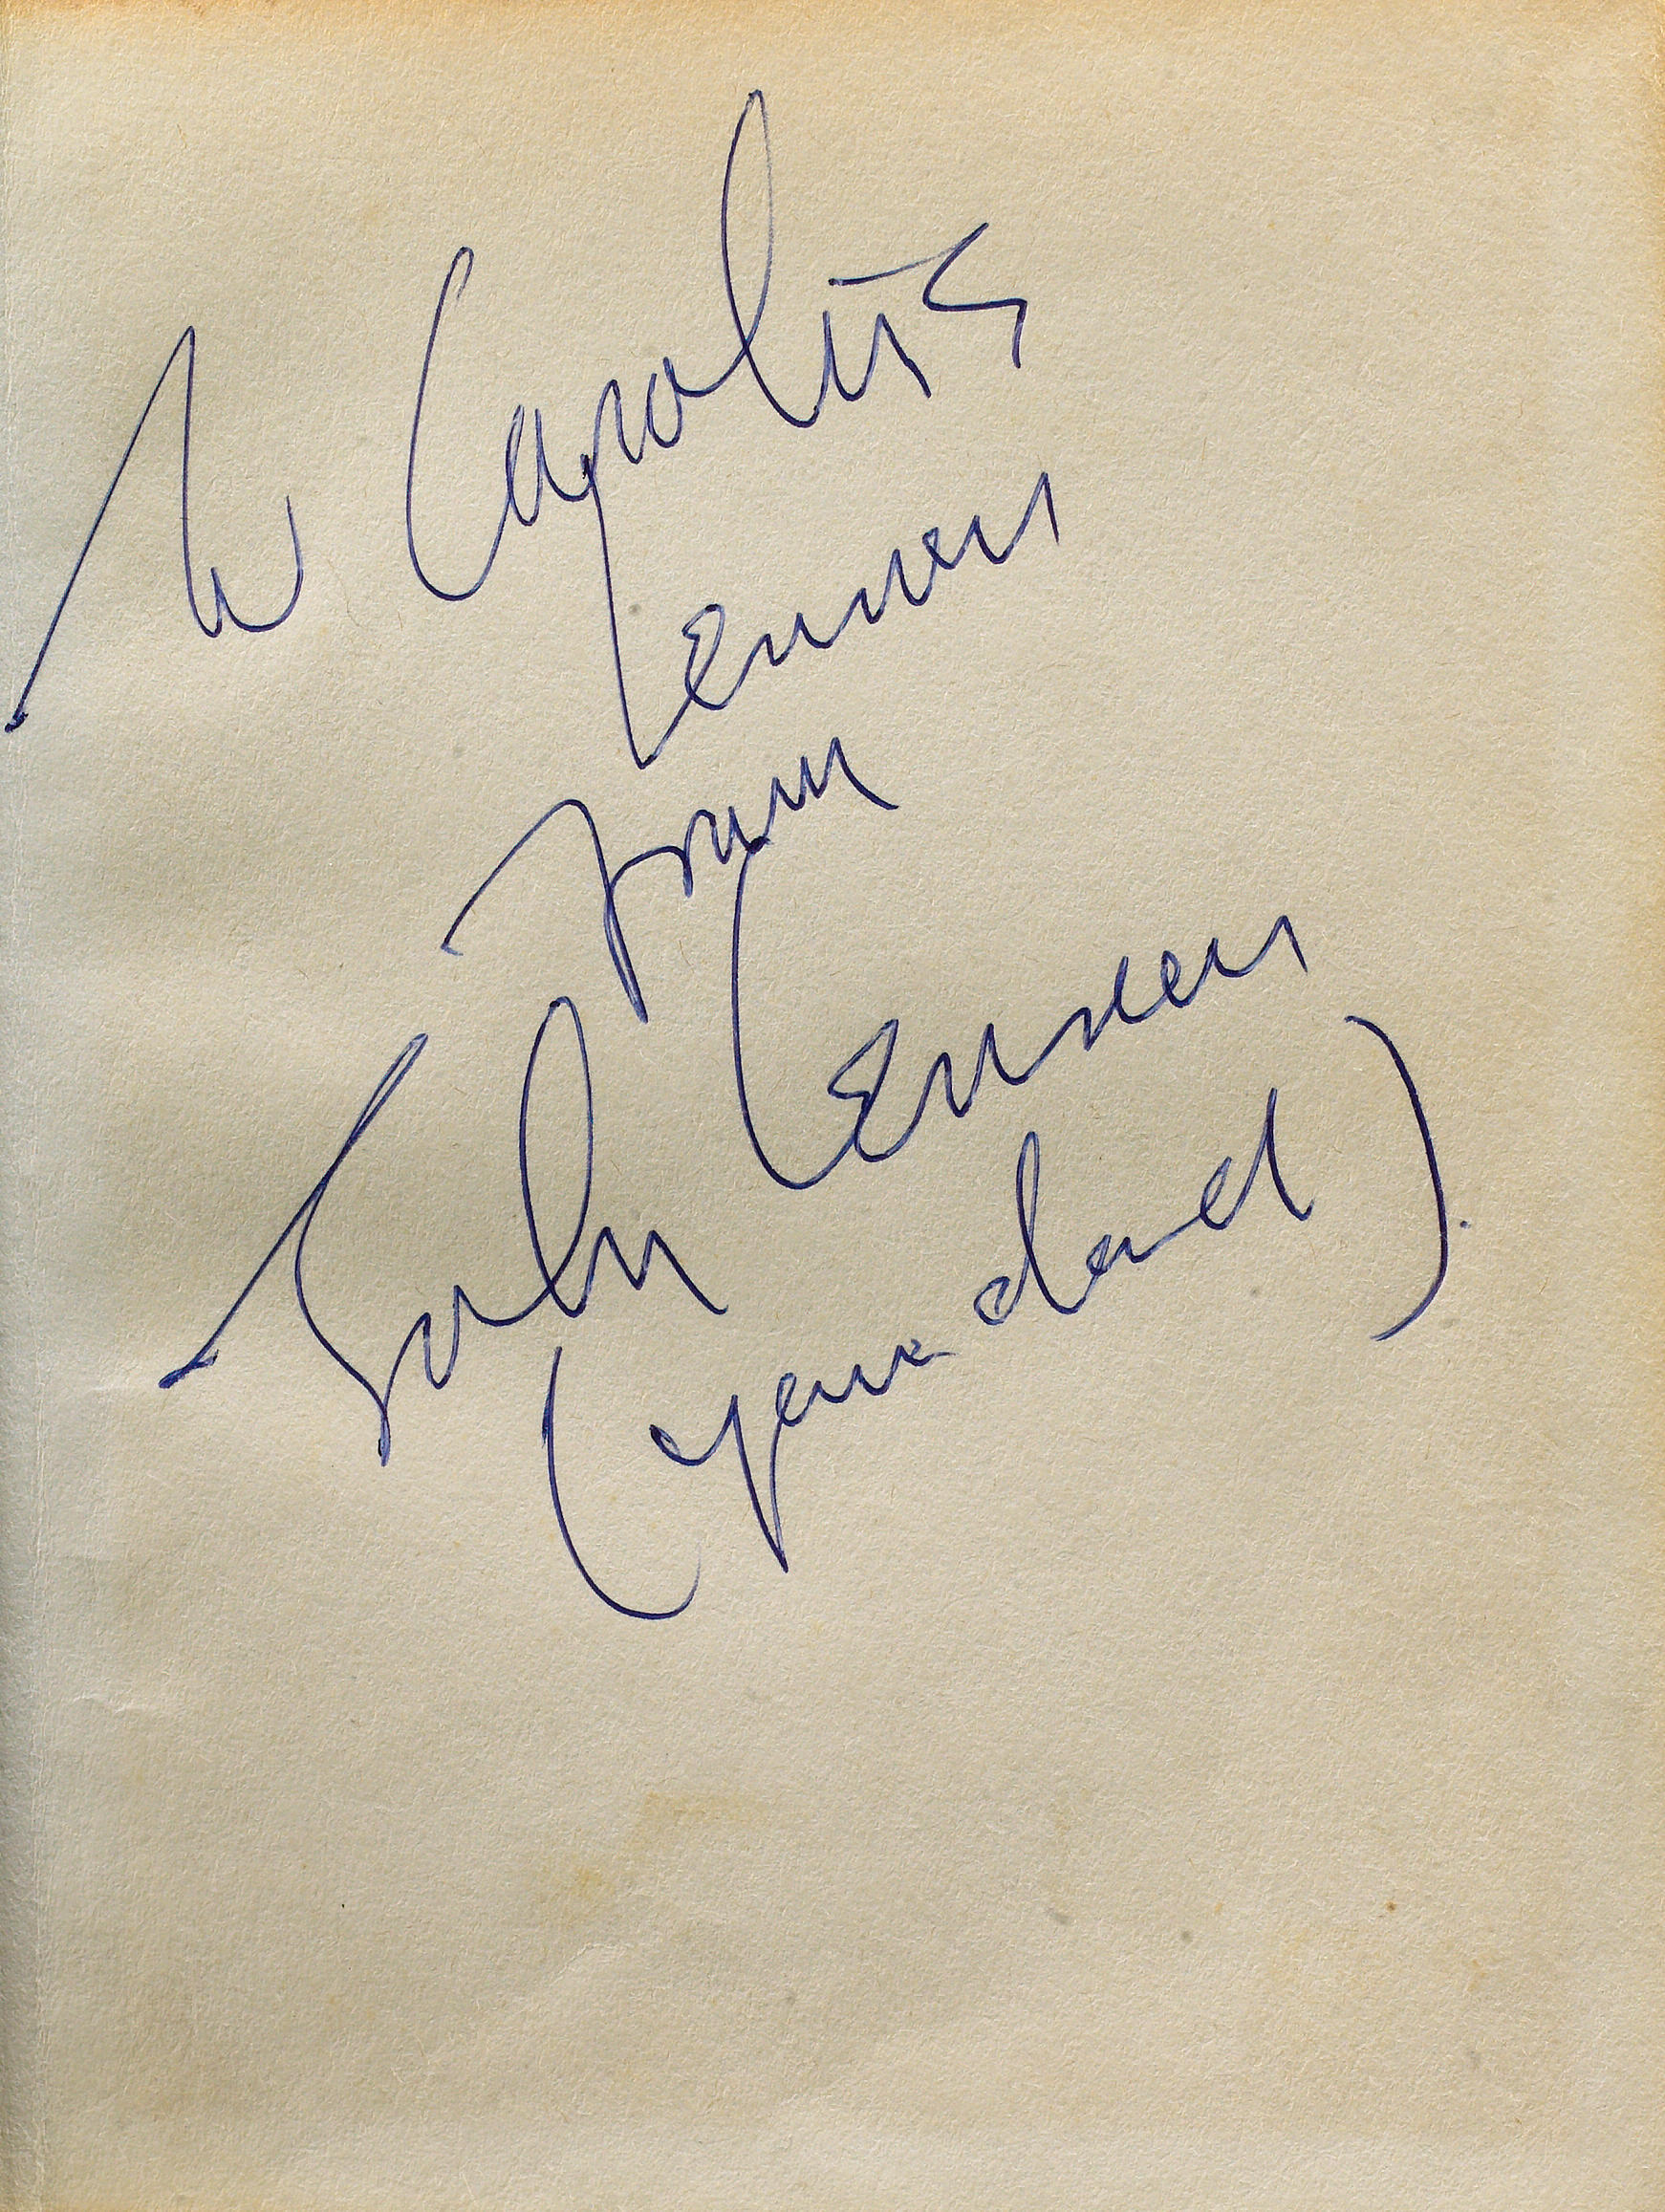 to Caroline
Lennon
from
John Lennon
(your dad)